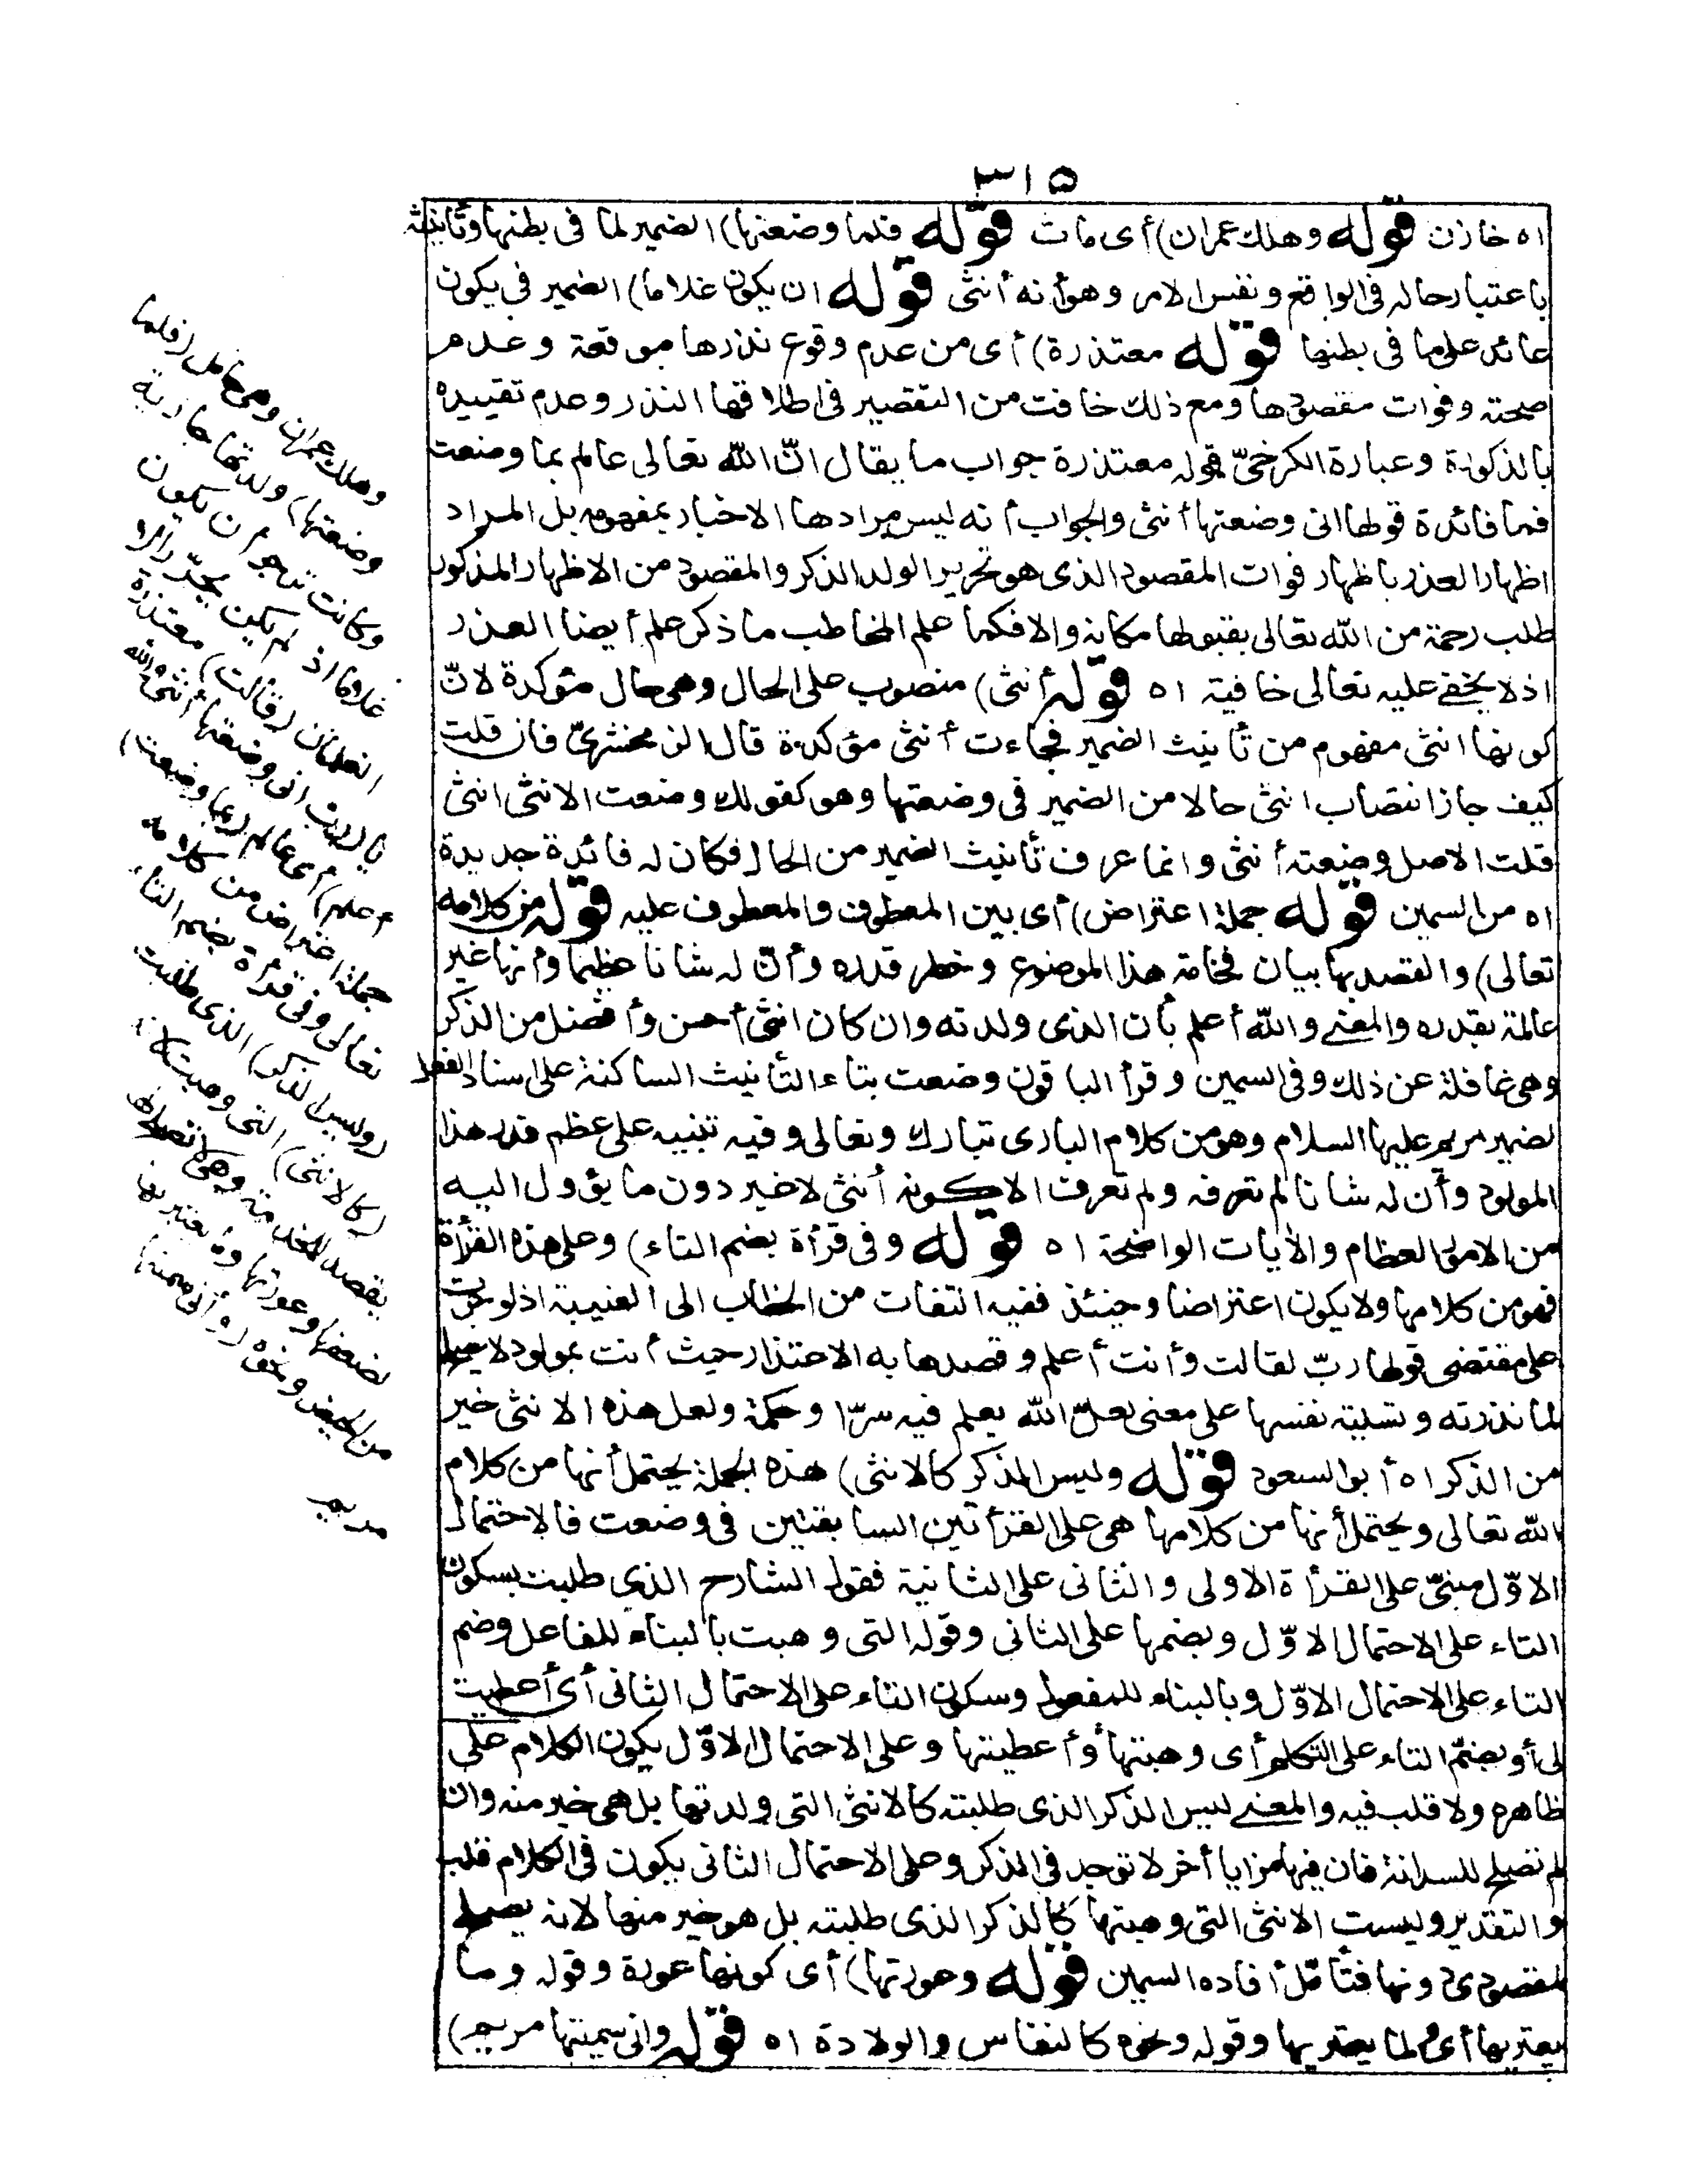 ٣١٥
اه خازن قوله وهلك عمران) أى مات قوله فلما وضعتها) الضمير لما فى بطنها وتأنيثه
باعتبار حاله فى الواقع ونفس الامر وهو أنه أنثى قوله ان يكون غلاما) الضمير فى يكون
عائد على ما فى بطنها قوله معتذرة) أى من عدم وقوع نذرها موقعة وعدم
صحته وفوات مقصودها ومع ذلك خافت من التقصير فى اطلاقها النذر وعدم تقييده
بالذكورة وعبارة الكرخىّ قوله معتذرة جواب ما يقال انّ الله تعالى عالم بما وضعت
فما فائدة قولها انى وضعتها أنثى والجواب أنه ليس مرادها الاخبار بمفهومه بل المراد
اظهار العذر باظهار فوات المقصود الذى هو تحرير الولد الذكر والمقصود من الاظهار المذكور
طلب رحمة من الله تعالى بقبولها مكانه والا فكما علم المخاطب ما ذكر علم أيضا العذر
اذ لا يخفى عليه تعالى خافية اه قوله أنثى) منصوب على الحال وهى حال مؤكدة لانّ
كونها انثى مفهوم من تأنيث الضمير فجاءت أنثى مؤكدة قال الزمخشرىّ فان قلت
كيف جاز انتصاب انثى حالا من الضمير فى وضعتها وهو كقولك وضعت الانثى انثى
قلت الاصل وضعته أنثى وانما عرف تأنيث الضمير من الحال فكان له فائدة جديدة
اه من السمين قوله جملة اعتراض) أى بين المعطوف والمعطوف عليه قوله من كلامه
تعالى) والقصد بها بيان فخامة هذا الموضوع وخطر قدره وأنّ له شانا عظيما وأنها غير
عالمة بقدره والمعنى والله أعلم بأن الذى ولدته وان كان انثى أحسن وأفضل من الذكر
وهى غافلة عن ذلك وفى السمين وقرأ الباقون وضعت بتاء التأنيث الساكنة على اسناد الفعل
لضمير مريم عليها السلام وهو من كلام البارى تبارك وتعالى وفيه تنبيه على عظم قدر هذا
المولود وأن له شانا لم تعرفه ولم تعرف الا كونه أنثى لاغير دون ما يؤول اليه
من الامور العظام والأيات الواضحة اه قوله وفى قرأة بضم التاء) وعلى هذه القرأة
فهو من كلامها ولا يكون اعتراضا وحينئذ ففيه التفات من الخطاب الى الغيبة اذ لو جرت
على مقتضى قولها ربّ لقالت وأنت أعلم وقصدها به الاعتذار حيث أتت بمولود لا يصلح
لما نذرته وتسلية نفسها على معنى لعلّ الله يعلم فيه سرّا وحكمة ولعل هذه الانثى خير
من الذكر اه أبو السعود قوله وليس الذكر كالانثى) هذه الجملة يحتمل أنها من كلام
الله تعالى ويحتمل أنها من كلامها هى على القرأتين السابقتين فى وضعت فالاحتمال
الاوّل مبنىّ على القرأة الاولى والثانى على الثانية فقول الشارح الذى طلبت بسكون
التاء على الاحتمال الاوّل وبضمها على الثانى وقوله التى وهبت بالبناء للفاعل وضم
التاء على الاحتمال الاوّل وبالبناء للمفعول وسكون التاء على الاحتمال الثانى أى أعطيت
لى أو بضمّ التاء على التكلم أى وهبتها أو أعطيتها وعلى الاحتمال الاوّل يكون الكلام على
ظاهره ولا قلب فيه والمعنى ليس الذكر الذى طلبته كالانثى التى ولدتها بل هى خير منه وان
لم تصلح للسدانة فان فيها مزايا أخر لا توجد فى الذكر وعلى الاحتمال الثانى يكون فى الكلام قلب
والتقدير وليست الانثى التى وهبتها كالذكر الذى طلبته بل هو خير منها لانه يصلح
لمقصودى دونها فتأمّل أفاده السمين قوله وعورتها) أى كونها عورة وقوله وما
يعتريها أى ولما يعتريها وقوله ونحوه كالنفاس والولادة اه قوله وانى سميتها مريم)
وهلك عمران وهى حامل (فلما
وضعتها) ولدتها جارية
وكانت ترجو أن يكون
غلاما اذ لم يكن يحرّر الا
الغلمان (قالت) معتذرة
يا (رب انى وضعتها أنثى والله
أعلم) أى عالم (بما وضعت)
جملة اعتراض من كلامه
تعالى وفى قرأة بضم التاء
(وليس الذكر) الذى طلبت
(كالانثى) التى وهبت لانه
يقصد للخدمة وهى لا تصلح لها
لضعفها وعورتها وما يعتريها
من الحيض ونحوه (وانى سميتها)
مريم